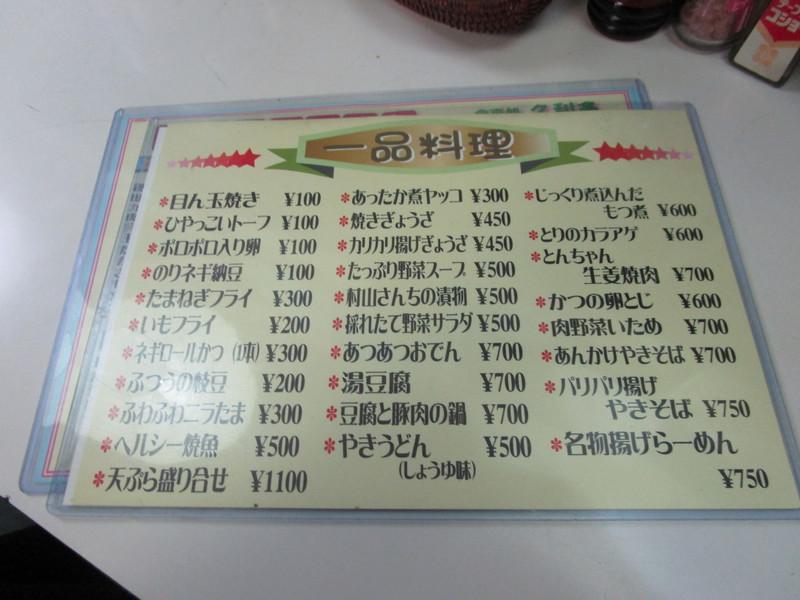 一品料理
*目ん玉焼き ¥100
*ひやっこいトーフ ¥100
*ポロポロ入り卵 ¥100
*のりネギ納豆 ¥100
*たまねぎフライ ¥300
*いもフライ ¥200
*ネギロールかつ(1本) ¥300
*ふつうの枝豆 ¥200
*ふわふわニラたま ¥300
*ヘルシー焼魚 ¥500
*天ぷら盛り合せ ¥1100
*あったか煮ヤッコ ¥300
*焼きぎょうざ ¥450
*カリカリ揚げぎょうざ ¥450
*たっぷり野菜スープ ¥500
*村山さんちの漬物 ¥500
*採れたて野菜サラダ ¥500
*あつあつおでん ¥700
*湯豆腐 ¥700
*豆腐と豚肉の鍋 ¥700
*やきうどん ¥500
(しょうゆ味)
*じっくり煮込んだ
もつ煮 ¥600
*とりのカラアゲ ¥600
*とんちゃん
生姜焼肉 ¥700
*かつの卵とじ ¥600
*肉野菜いため ¥700
*あんかけやきそば ¥700
*パリパリ揚げ
やきそば ¥750
*名物揚げらーめん
¥750